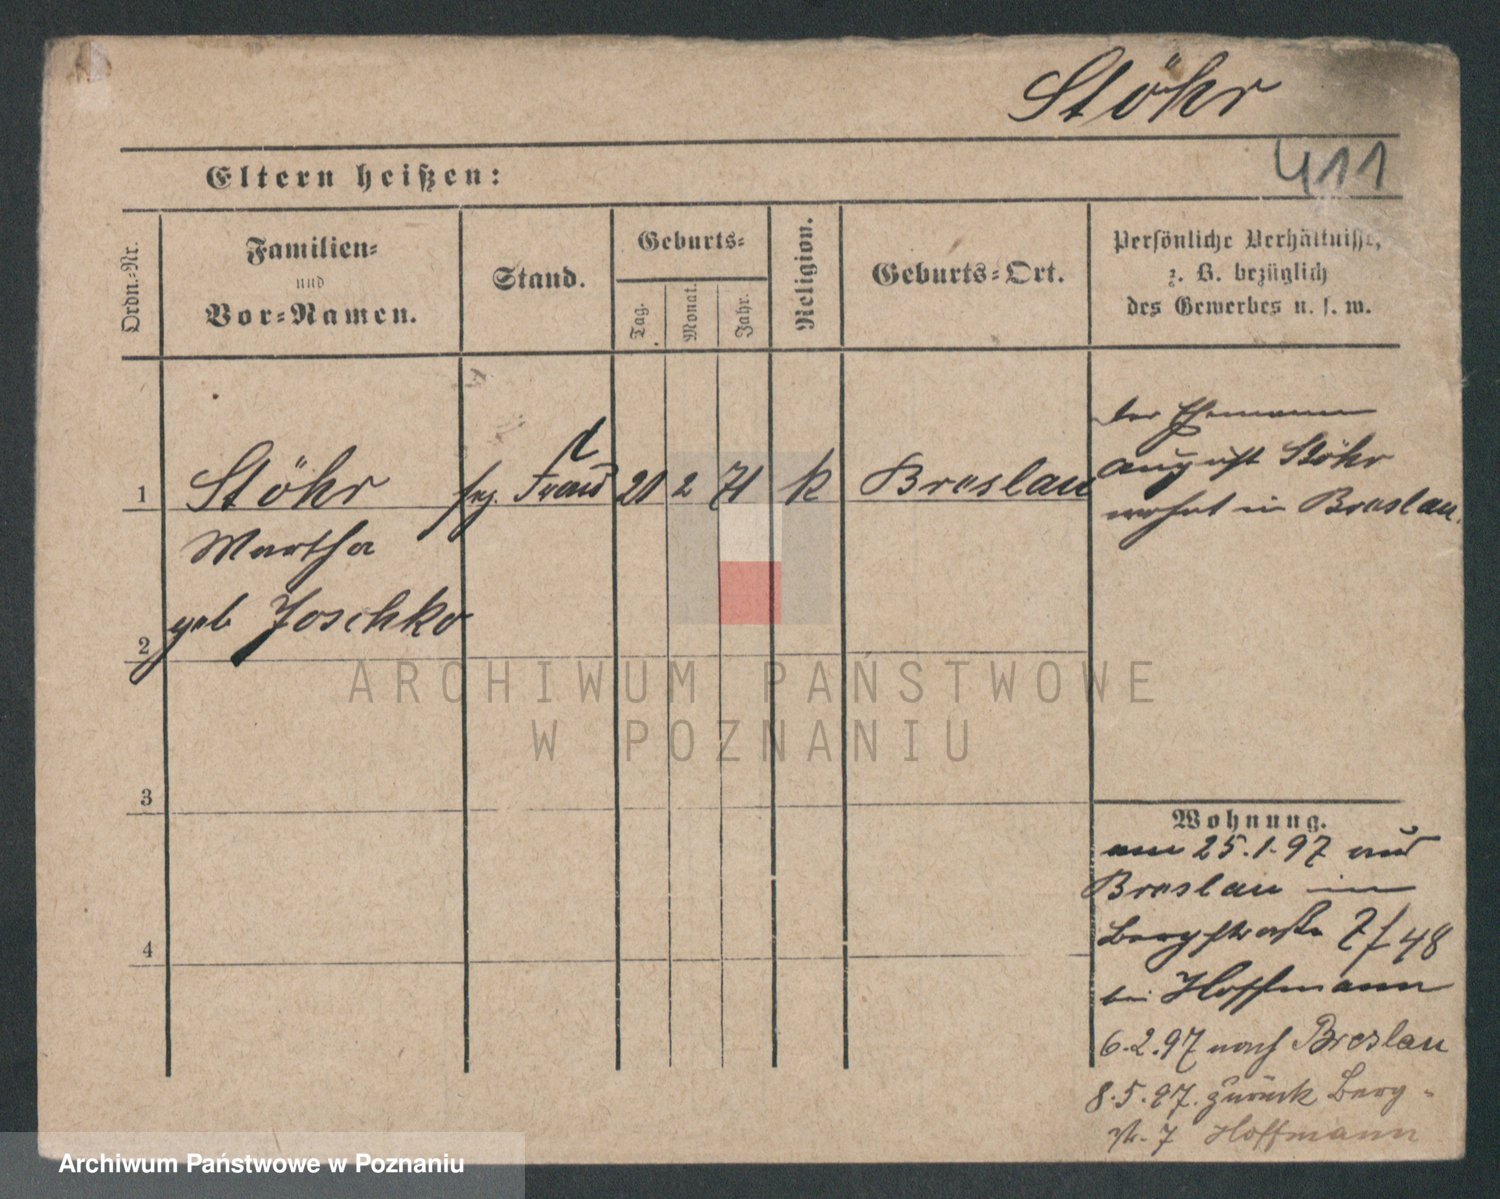 Stöhr
411
Eltern heißen:
Ordn.-Nr.
Familien-
und
Vor-Namen.
Stand.
Geburts-
Tag.
Monat.
Jahr.
Religion.
Geburts-Ort.
Persönliche Verhältnisse,
z. B. bezüglich
des Gewerbes u. s. w.
1 Stöhr Frau 21 2 71 k Breslau
Martha
geb Joschko
2
3
4
der Ehemann
August Stöhr
wohnt in Breslau.
Wohnung.
am 25.1.97 aus
Breslau in
Bergstraße 7/48
bei Hoffmann
6.2.97 nach Breslau
8.5.97. zurück Berg-
str. 7 Hoffmann
ARCHIWUM PAŃSTWOWE
W POZNANIU
Archiwum Państwowe w Poznaniu